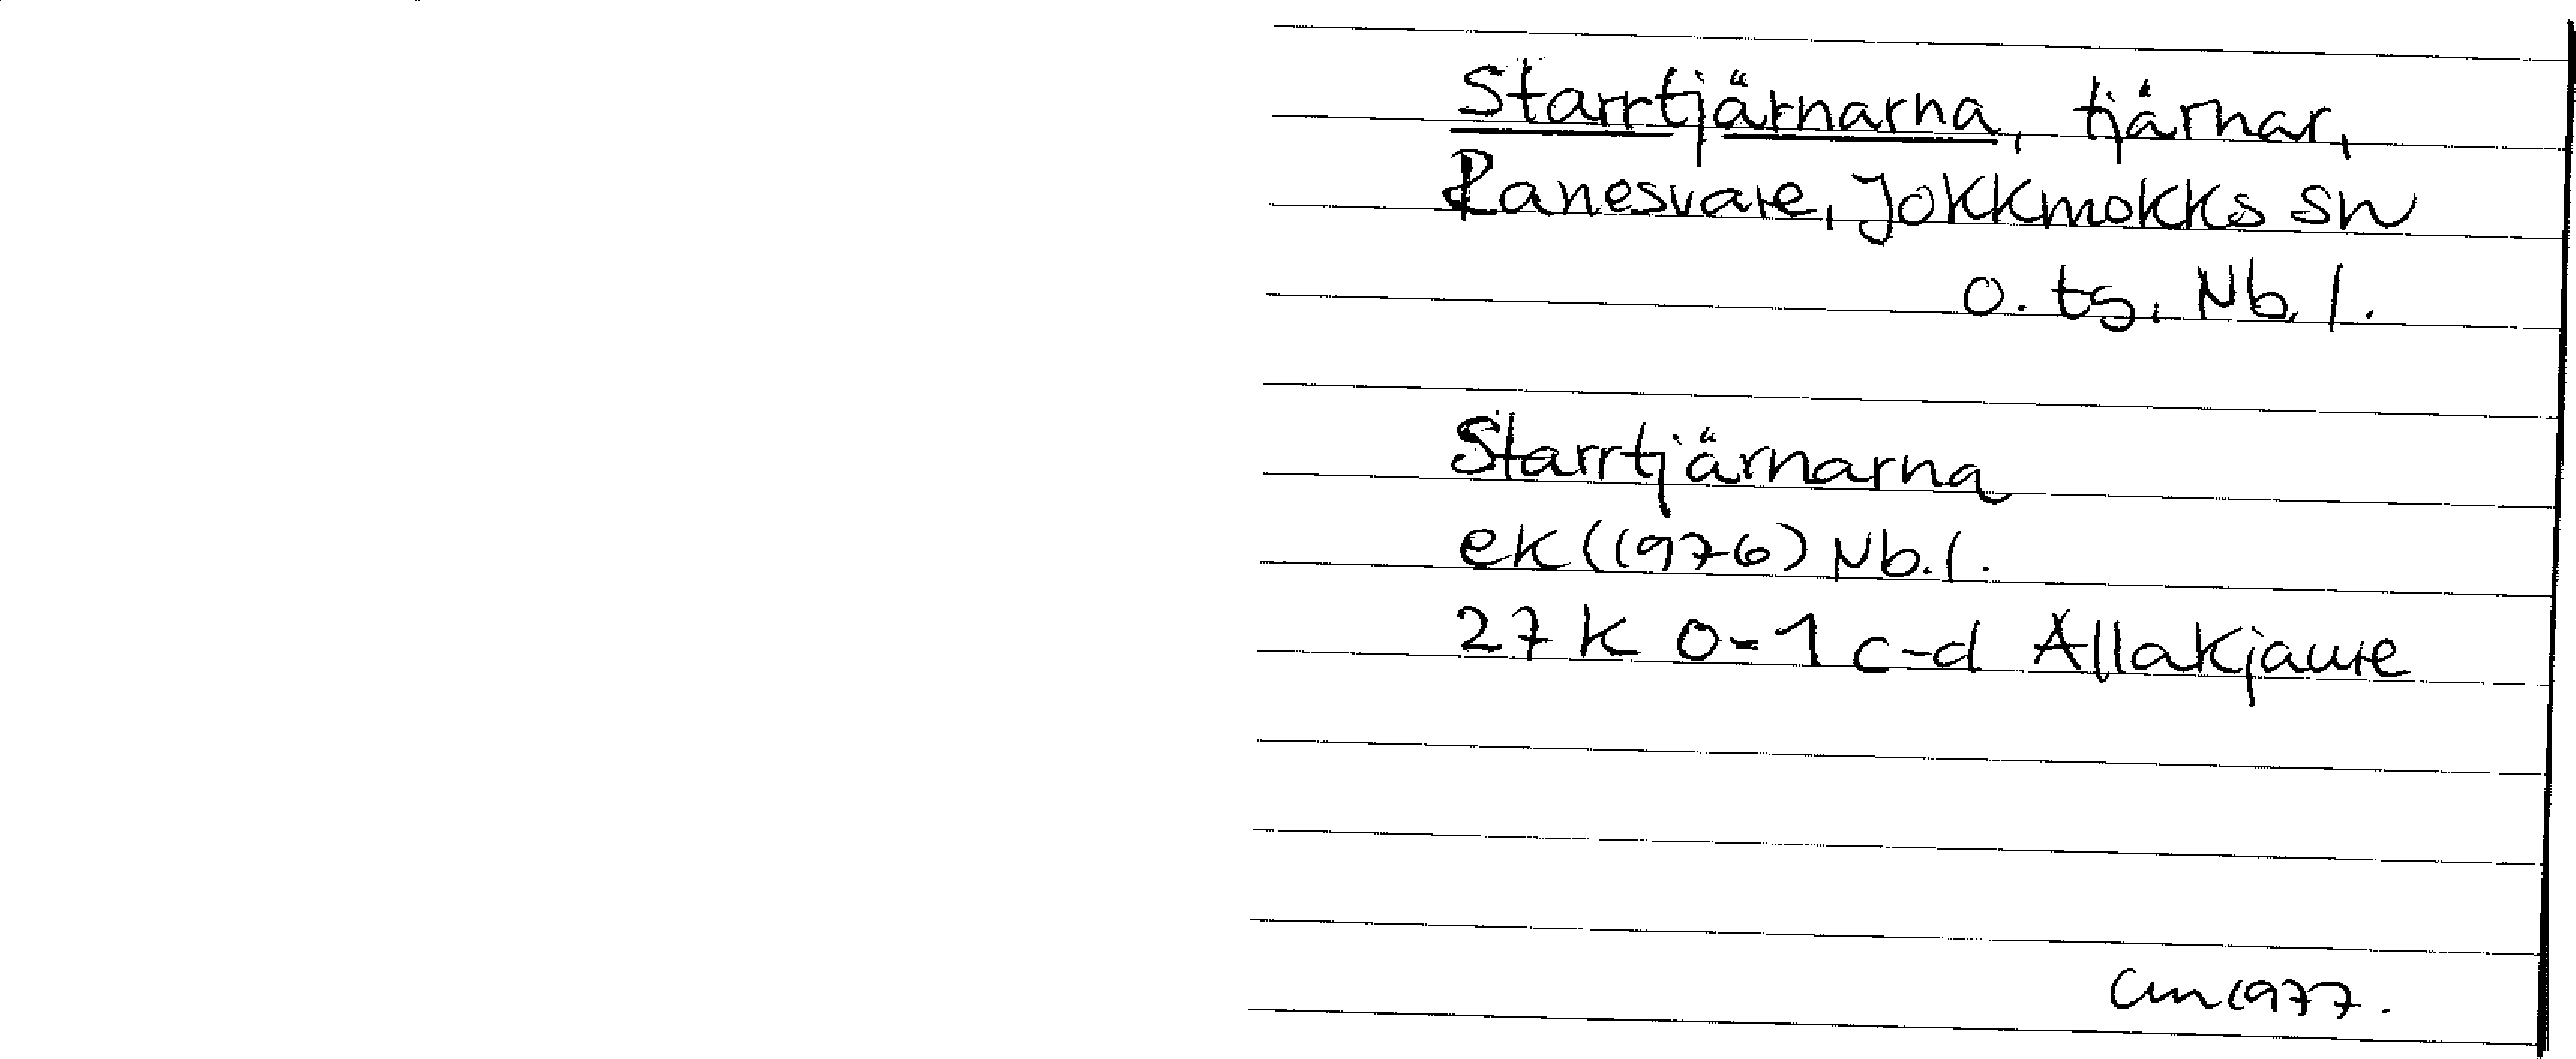 Starrtjärnarna, tjärnar,
Ranesvare, Jokkmokks sn
o. tg, Nb. l.
Starrtjärnarna
ek (1976) Nb. l.
27 K 0-1 c-d Allakjaure
Cm 1977.